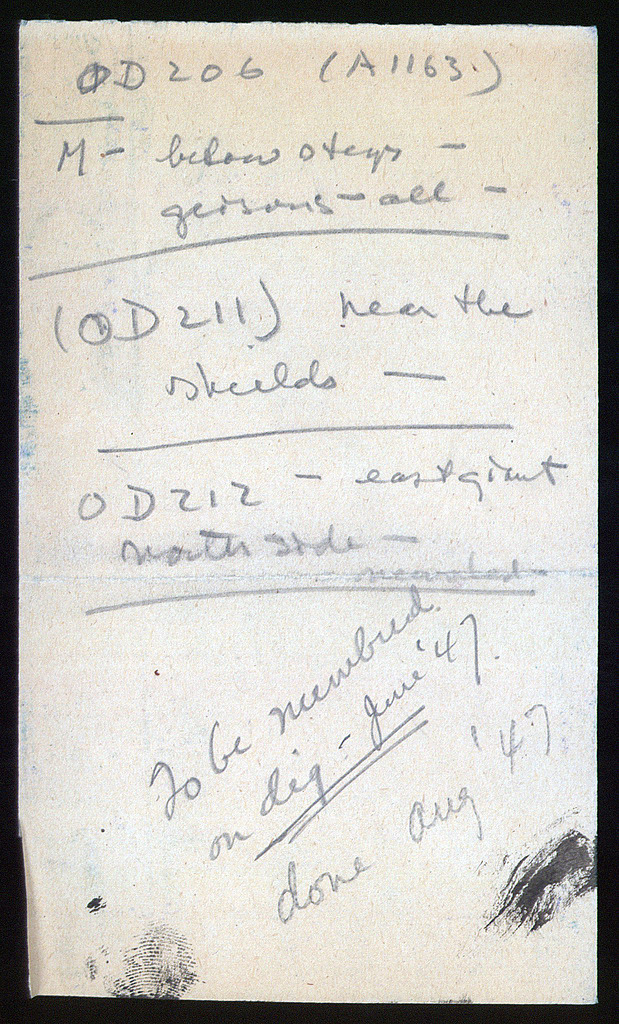 OD 206 (A 1163.)
M - below steps -
geisons - all -
(OD 211) near the
shields -
OD 212 - east giant
north side -
To be numbred
on dig - June '47.
done Aug '47